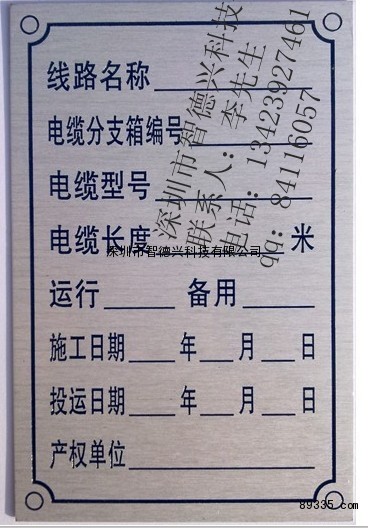 线路名称
电缆分支箱编号
电缆型号
电缆长度 米
运行 备用
施工日期 年 月 日
投运日期 年 月 日
产权单位
深圳市智德兴科技
联系人：李先生
电话：13423927461
qq：84116057
深圳市智德兴科技有限公司
89335.com